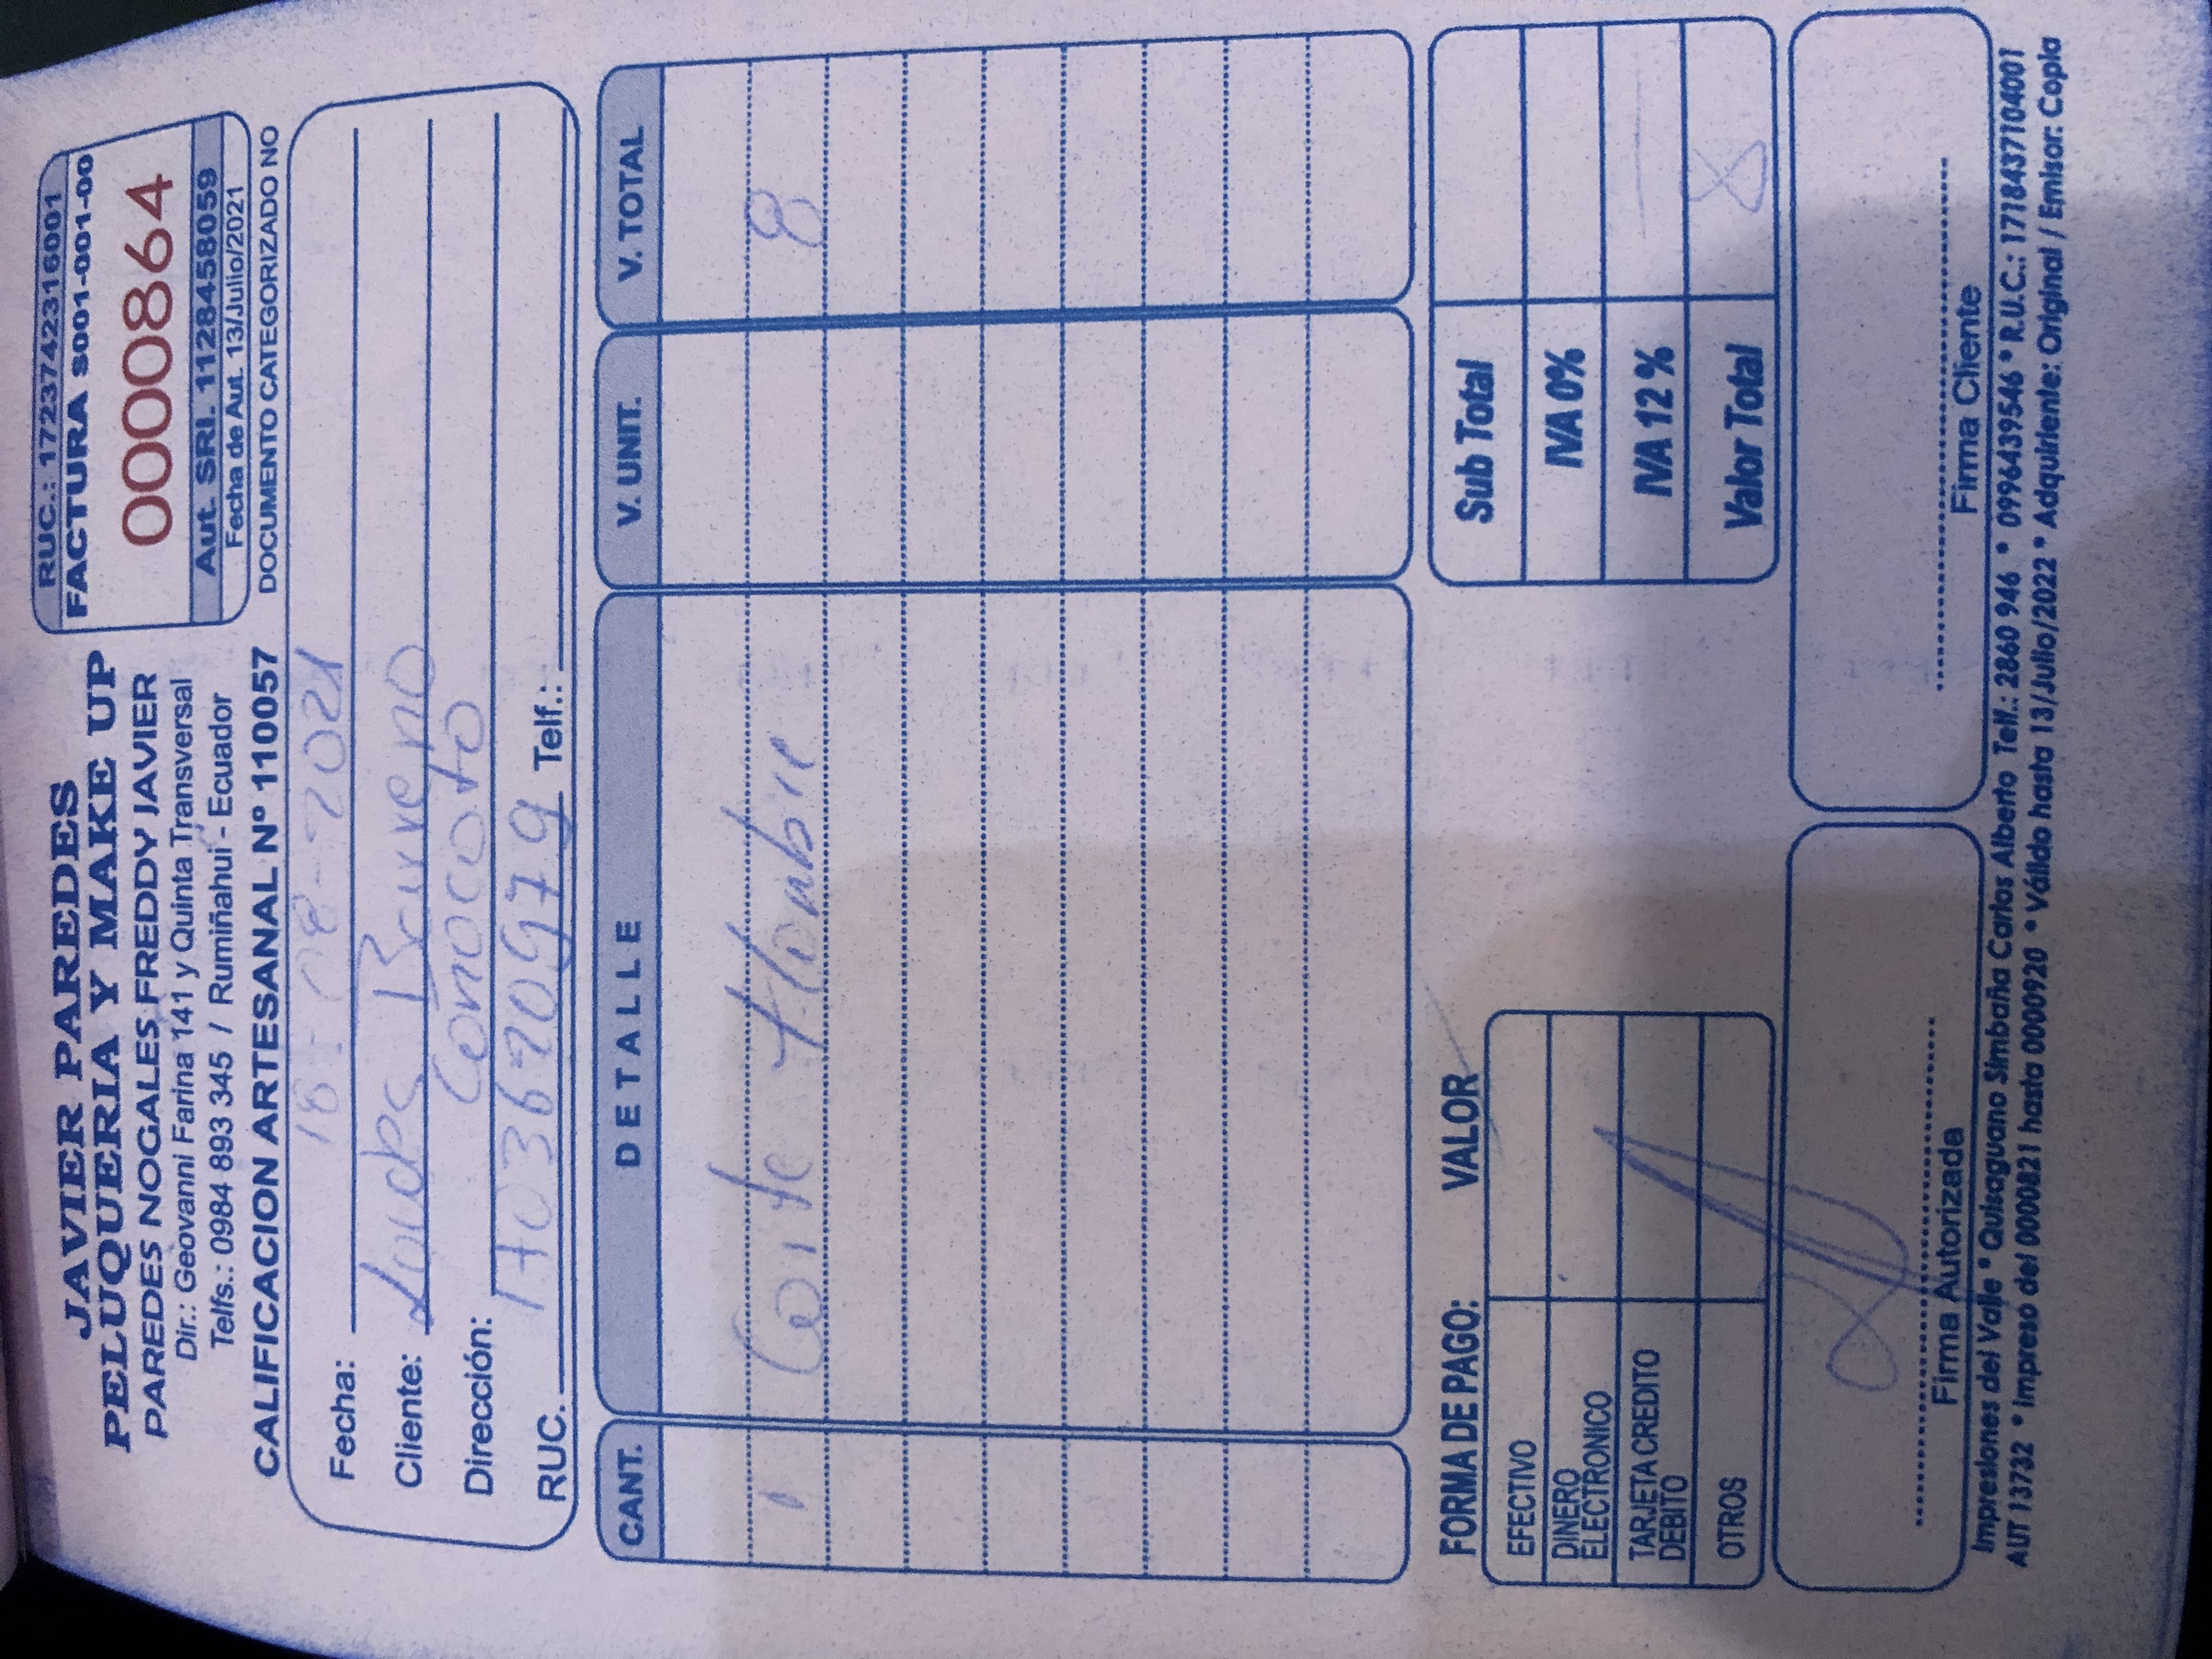 JAVIER PAREDES
PELUQUERIA Y MAKE UP
PAREDES NOGALES FREDDY JAVIER
Dir.: Geovanni Farina 141 y Quinta Transversal
Telfs.: 0984 893 345 / Rumiñahui - Ecuador
CALIFICACION ARTESANAL Nº 110057
RUC.: 1723742316001
FACTURA S001-001-00
0000864
Aut. SRI. 1128458059
Fecha de Aut. 13/Julio/2021
DOCUMENTO CATEGORIZADO NO
Fecha: 18-08-2021
Cliente: Loudes Barreno
Dirección: Conocoto
RUC. 1703620979 Telf.:
CANT. DETALLE V. UNIT. V. TOTAL
1 Corte Hombre 8
FORMA DE PAGO: VALOR
EFECTIVO
DINERO
ELECTRONICO
TARJETA CREDITO
DEBITO
OTROS
Sub Total
IVA 0%
IVA 12 %
Valor Total 8
Firma Autorizada
Firma Cliente
Impresiones del Valle * Quisaguano Simbaña Carlos Alberto Telf.: 2860 946 * 0996439546 * R.U.C.: 1718437104001
AUT 13732 * Impreso del 0000821 hasta 0000920 * Válido hasta 13/Julio/2022 * Adquiriente: Original / Emisor: Copia